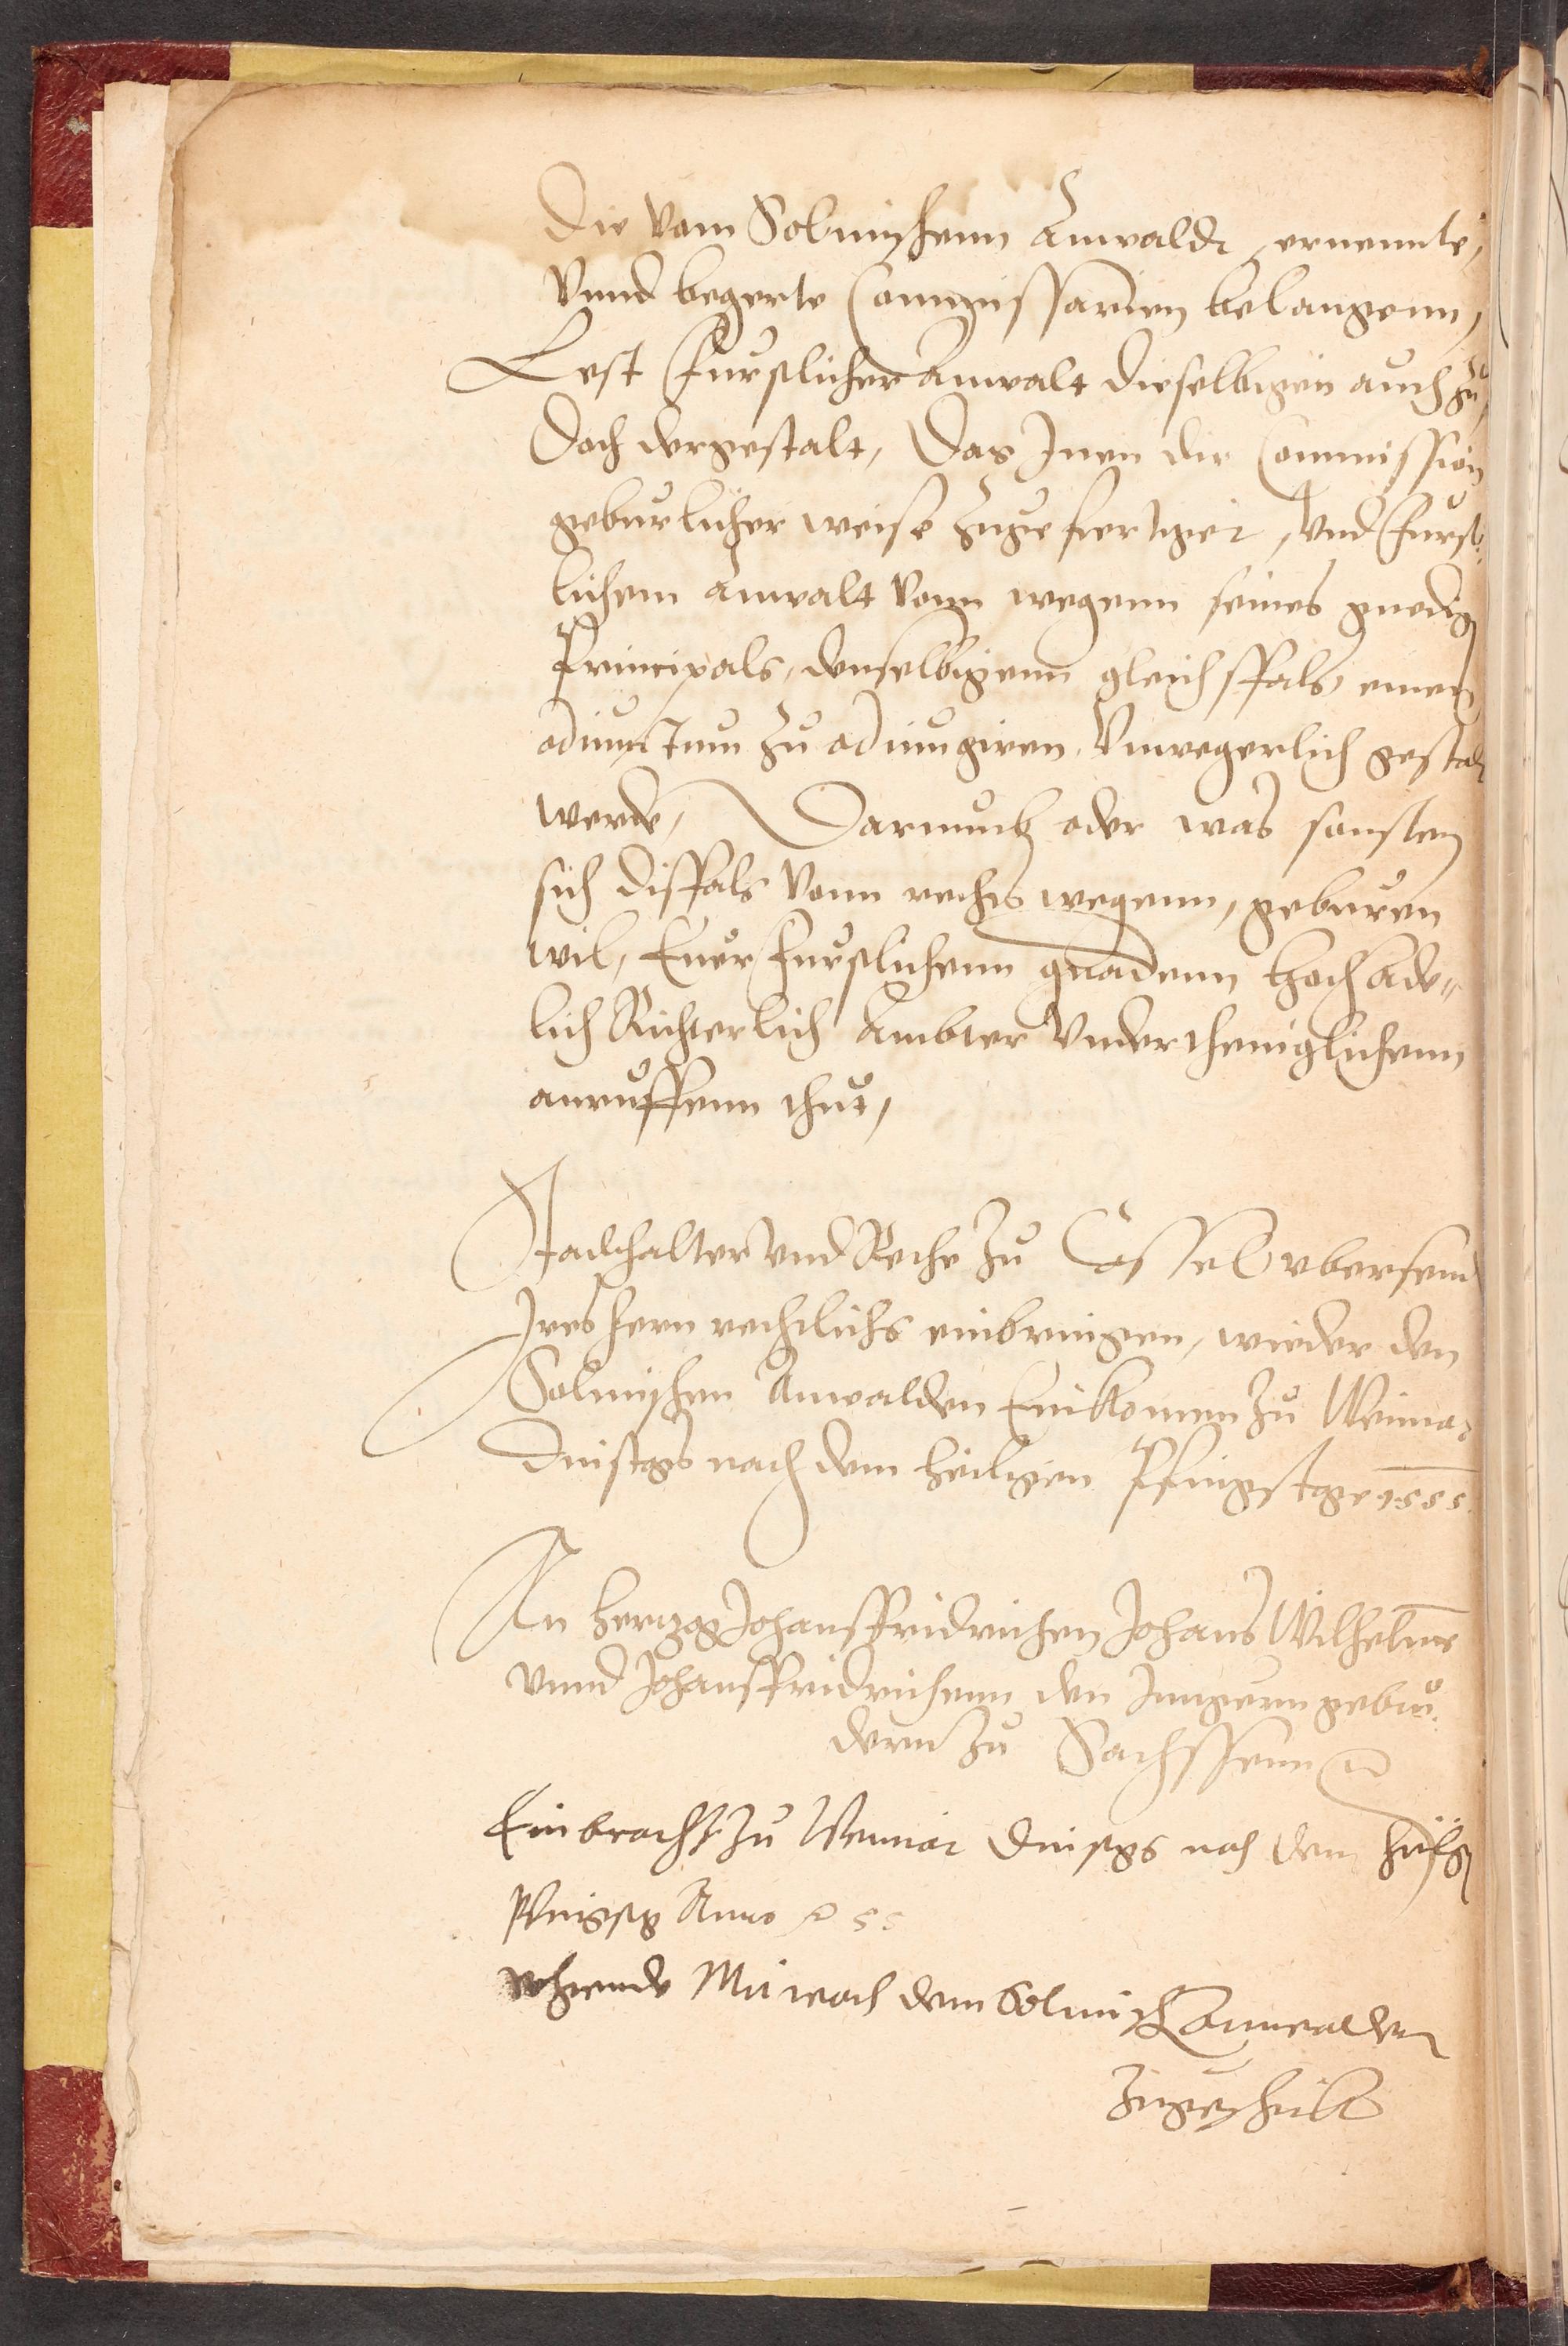 Die vom Solmischenn Anwaldt, ernennte,
Vnnd begerte Commissarien belangenn,
Lest furstlicher Anwalt dieselbigen auch zu,
Doch dergestalt, Das Inen die Commission
geburlicher weise zugefertiget, Vnd furst¬
lichem Anwalt Vonn wegenn seines gnedig
Principals, denselbigenn gleichsfals einen
adiunctum zu adiungiren, Vnwegerlich gestadt
werde, Darumb oder was sonsten
sich disfals Vonn rechts wegenn, geburen
wil, Euer furstlichenn gnadenn hoch ade¬
lich Richterlich Ambter Vndertheniglichenn
anruffenn thut,
Stadthalter vnd Rethe zu Cassel vbersend
Ires hern rechtlichs einbringen, wieder den
Solmischen Anwalden Einkomen zu Weimar
Dinstags nach dem heiligen Pfingstage 1555.
An hertzog Johansfridrichen Johans Wilhelmen
vnnd Johansfridrichenn den Jungern gebru¬
dern zu Sachssenn
Einbracht zu Weimar Dinstgs nach dem heilgen
Pfingstg Anno 55
Mitwoch dem Solmisch Anwalden
zugeschickt